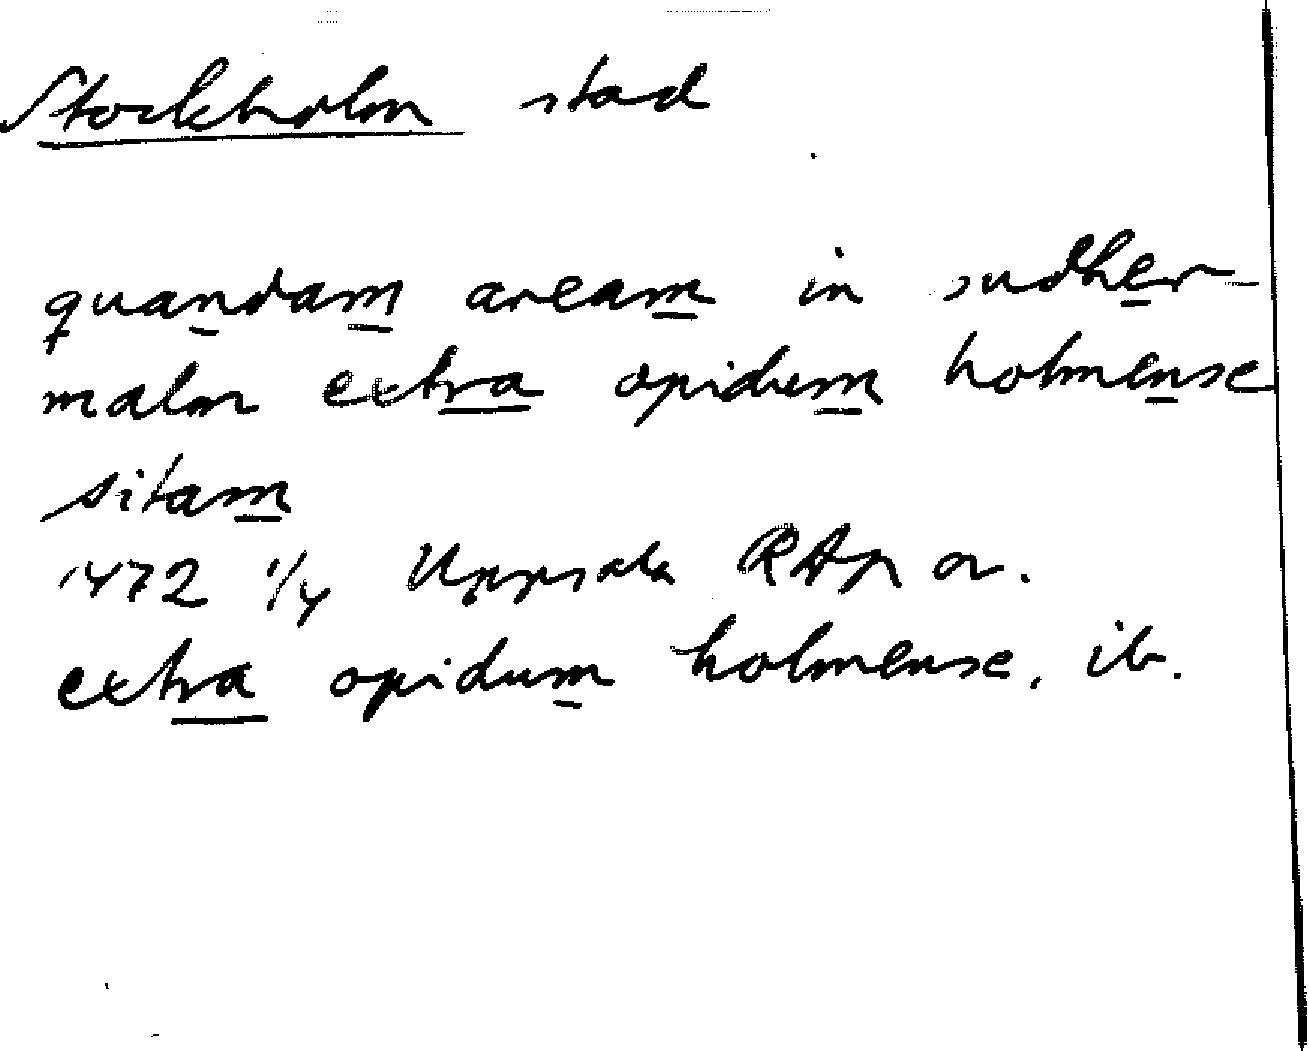 Stockholm stad
quandam aream in sudher-
malm extra opidum holmense
sitam
1472 1/4 Uppsala RAp or.
extra opidum holmense, ib.